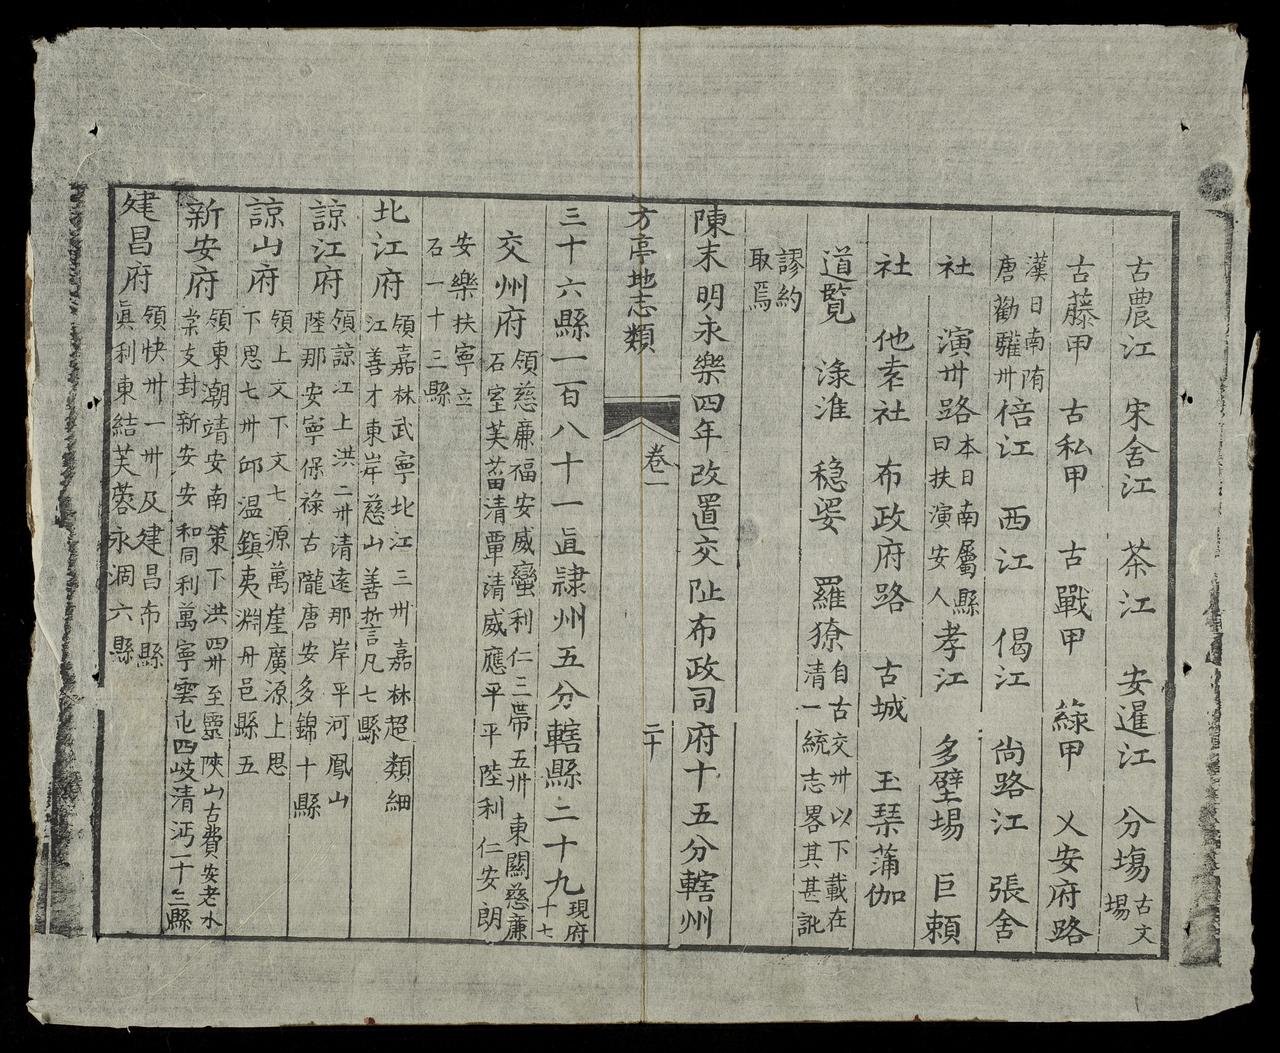 古農江　宋舍江　茶江　安暹江　分塲古文塲
古藤甲　古私甲　古戰甲　蔴甲　乂安府路
漢日南隋唐勸驩卅倍江　西江　偈江　尚路江　張舍
社　演卅路本日南屬縣曰扶演安人孝江　多壁場　巨賴
社　他袁社　布政府路　古城　玉琹蒲伽
道覽　淥淮　穩妛　羅獠自古交卅以下載在清一統志畧其甚訛
謬約取焉
陳末明永樂四年改置交阯布政司府十五分轄州
方亭地志類　卷一　二十
三十六縣一百八十一直隷州五分轄縣二十九現府十七
交州府領慈廉福安威蠻利仁三帶五卅東關慈廉石室芙菑清覃清威應平平陸利仁安朗
安樂扶寧立石一十三縣
北江府領嘉林武寧北江三卅嘉林超類細江善才東岸慈山善誓凡七縣
諒江府領諒江上洪二卅清遠那岸平河鳳山陸那安寧保祿古隴唐安多錦十縣
諒山府領上文下文七源萬崖廣源上思下思七卅邱溫鎭夷淵丹邑縣五
新安府領東潮靖安南策下洪四卅至靈陜山古費安老水棠支封新安安和同利萬寧雲屯四岐清沔一十三縣
建昌府領快卅一卅及建昌布縣眞利東結芙蓉永涸六縣